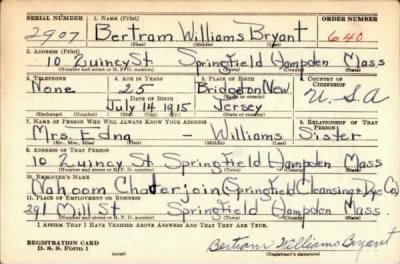 SERIAL NUMBER 1. NAME (Print) ORDER NUMBER
2907 Bertram Williams Bryant 640
(First) (Middle) (Last)
2. ADDRESS (Print)
10 Quincy St. Springfield Hampden Mass
(Number and street or R. F. D. number) (Town) (County) (State)
3. TELEPHONE 4. AGE IN YEARS 5. PLACE OF BIRTH 6. COUNTRY OF CITIZENSHIP
None 25 Bridgeton New U.S.A
DATE OF BIRTH (Town or county)
July 14 1915 Jersey
(Exchange) (Number) (Mo.) (Day) (Yr.) (State or country)
7. NAME OF PERSON WHO WILL ALWAYS KNOW YOUR ADDRESS 8. RELATIONSHIP OF THAT PERSON
Mrs. Edna - Williams Sister
(Mr., Mrs., Miss) (First) (Middle) (Last)
9. ADDRESS OF THAT PERSON
10 Quincy St. Springfield Hampden Mass
(Number and street or R. F. D. number) (Town) (County) (State)
10. EMPLOYER'S NAME
Nahoom Chaterjoin (Springfield Cleansing + Dye Co)
11. PLACE OF EMPLOYMENT OR BUSINESS
291 Mill St Springfield Hampden Mass.
(Number and street or R. F. D. number) (Town) (County) (State)
I AFFIRM THAT I HAVE VERIFIED ABOVE ANSWERS AND THAT THEY ARE TRUE.
REGISTRATION CARD
D. S. S. Form 1 (over)
Bertram Williams Bryant
(Registrant's signature)